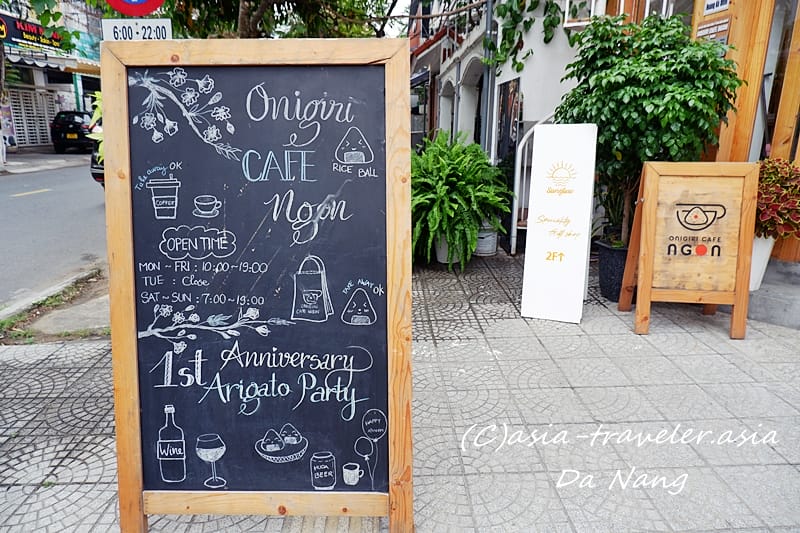 6:00 - 22:00
Onigiri
CAFE
Ngon
RICE BALL
Take away OK
COFFEE
OPEN TIME
MON ~ FRI : 10:00~19:00
TUE : Close
SAT ~ SUN : 7:00~19:00
ONIGIRI
CAFE NGON
TAKE AWAY OK
1st Anniversary
Arigato Party
Wine
HUDA
BEER
HAPPY
Sunglow
2F↑
ONIGIRI CAFE
NGON
(C)asia-traveler.asia
Da Nang